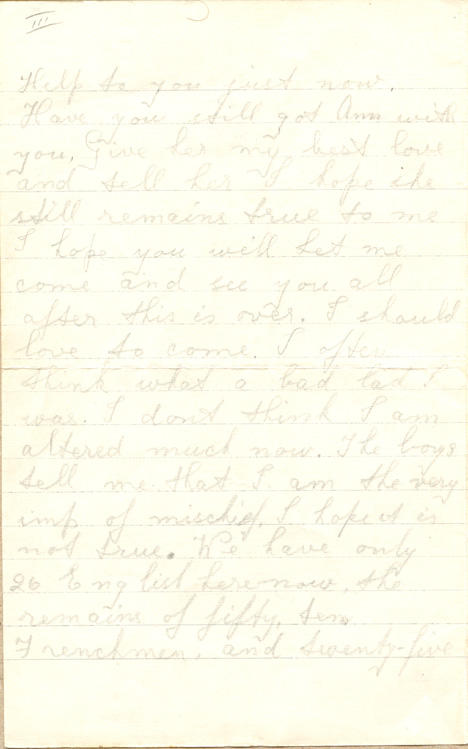 III
Help to you just now.
Have you still got Ann with
you, Give her my best love
and tell her I hope she
still remains true to me
I hope you will let me
come and see you all
after this is over. I should
love to come. I often
think what a bad lad I
was. I don't think I am
altered much now. The boys
tell me that I am the very
imp of mischief, I hope it is
not true. We have only
26 English here now, the
remains of fifty, ten
Frenchmen, and twenty-five